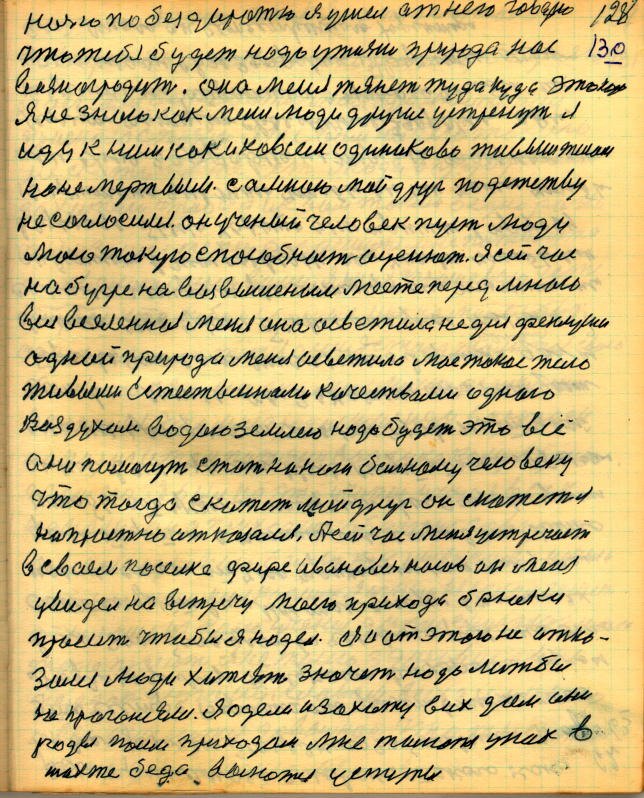 128
130
что тебя будет надо ужять природа нас
вознаградит. она меня тянет туда куда
Я не знаю как меня люди другие устренут я
иду к ним как и ко всем одинаково живым телом
но не мертвым. самною мой друг подетству
не согласился. он ученый человек пуст люди
мою такую способност оценют. Я сейчас
на бугре на возвышеным месте перед мною
вся вселенная меня она осветила не для
одной природа меня осветила мое такое тело
живыми Естественнами качествами одного
Воздухом водою землею надо будет это всё
они помогут стат на ноги больному человеку
что тогда скажет мой друг он скажет я
напрастно атказался. А сейчас меня устречает
в сваем поселке Ивановеч он меня
увидел на встречу моего прихода брюки
просит чтобы я надел. Я от этого не атка-
зался люди хатят значет надо
не праганяли. Я одел и захожу вих дом они
рады моим приходам мне у них в
шахте беда